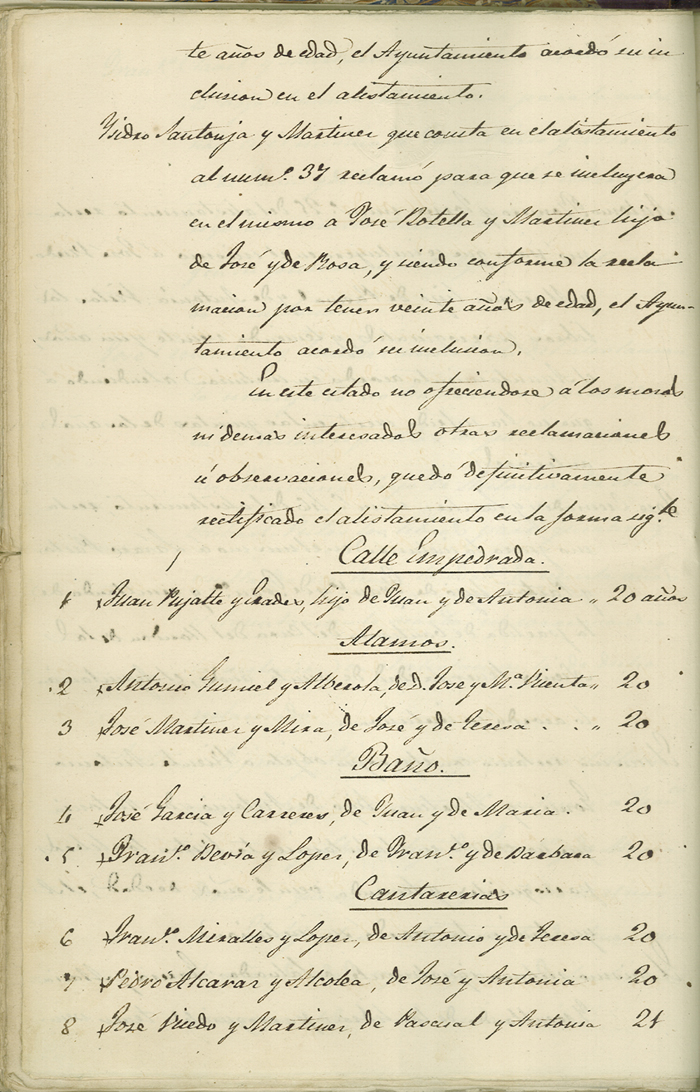 te años de edad, el Ayuntamiento acordó su in
clusion en el alistamiento.
Ysidro Santonja y Martinez que consta en el alistamiento
al num.º 37 reclamó para que se incluyera
en el mismo a José Botella y Martinez hijo
de José y de Rosa, y siendo conforme la recla
macion por tener veinte años de edad, el Ayun-
tamiento acordó su inclusion.
En este estado no ofreciendose á los mozos
ni demas interesados otras reclamaciones
ú observaciones, quedó definitivamente
rectificado el alistamiento en la forma sig.te
Calle Empedrada.
1 Juan Pujalte y Prades, hijo de Juan y de Antonia " 20 años
Alamos.
2 Antonio Gumiel y Alberola, de d. Jose y M.ª Vicenta " 20
3 José Martinez y Mira, de José y de Teresa . . " 20
Baño.
4 José Garcia y Carreres, de Juan y de Maria . 20
5 Fran.co Devia y Lopez, de Fran.co y de Barbara 20
Cantarerias
6 Fran.co Miralles y Lopez, de Antonio y de Teresa 20
7 Pedro Alcaraz y Alcolea, de José y Antonia 20
8 José y Martinez, de Pascual y Antonia 21